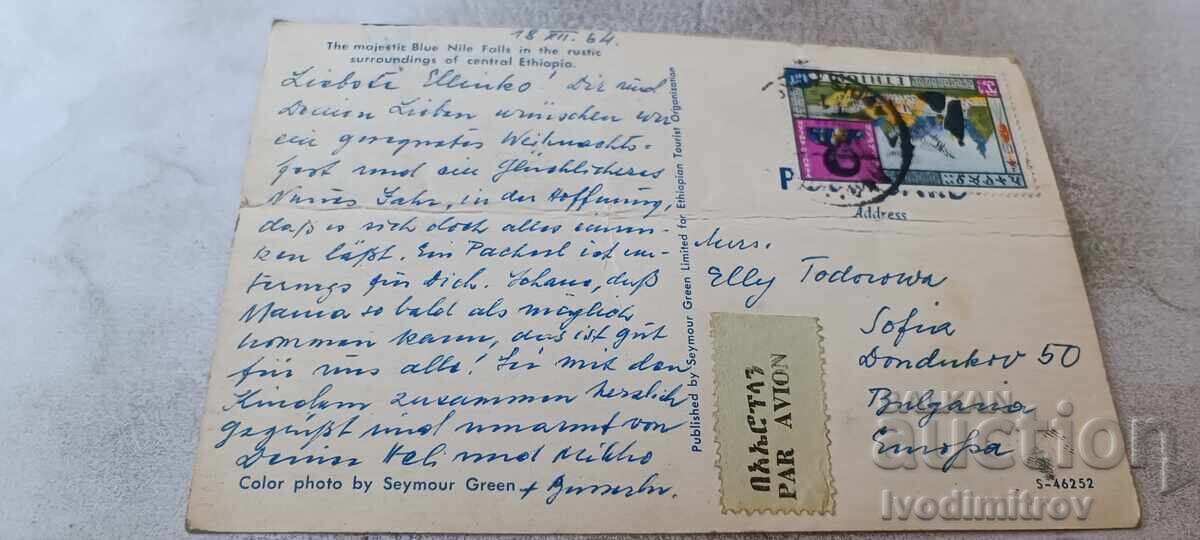 18 XII. 64.
The majestic Blue Nile Falls in the rustic
surroundings of central Ethiopia.
Liebste Ellinko! Dir und
Deinen Lieben wünschen wir
ein gesegnetes Weihnachts-
fest und ein Glückliches
Neues Jahr, in der Hoffnung,
daß es sich doch alles einren-
ken läßt. Ein Packerl ist un-
terwegs für Dich. Schaue, daß
Mama so bald als möglich
kommen kann, das ist gut
für uns alle! Sei mit den
Kindern zusammen herzlich
gegrüßt und umarmt von
Deiner Heli und Mikko
+
Color photo by Seymour Green
Published by Seymour Green Limited for Ethiopian Tourist Organization
Address
Mrs.
Elly Todorowa
Sofia
Dondukov 50
Bulgaria
Europa
በአኤሮፕላን
PAR AVION
S-46252
BALKAN
auction
Ivodimitrov